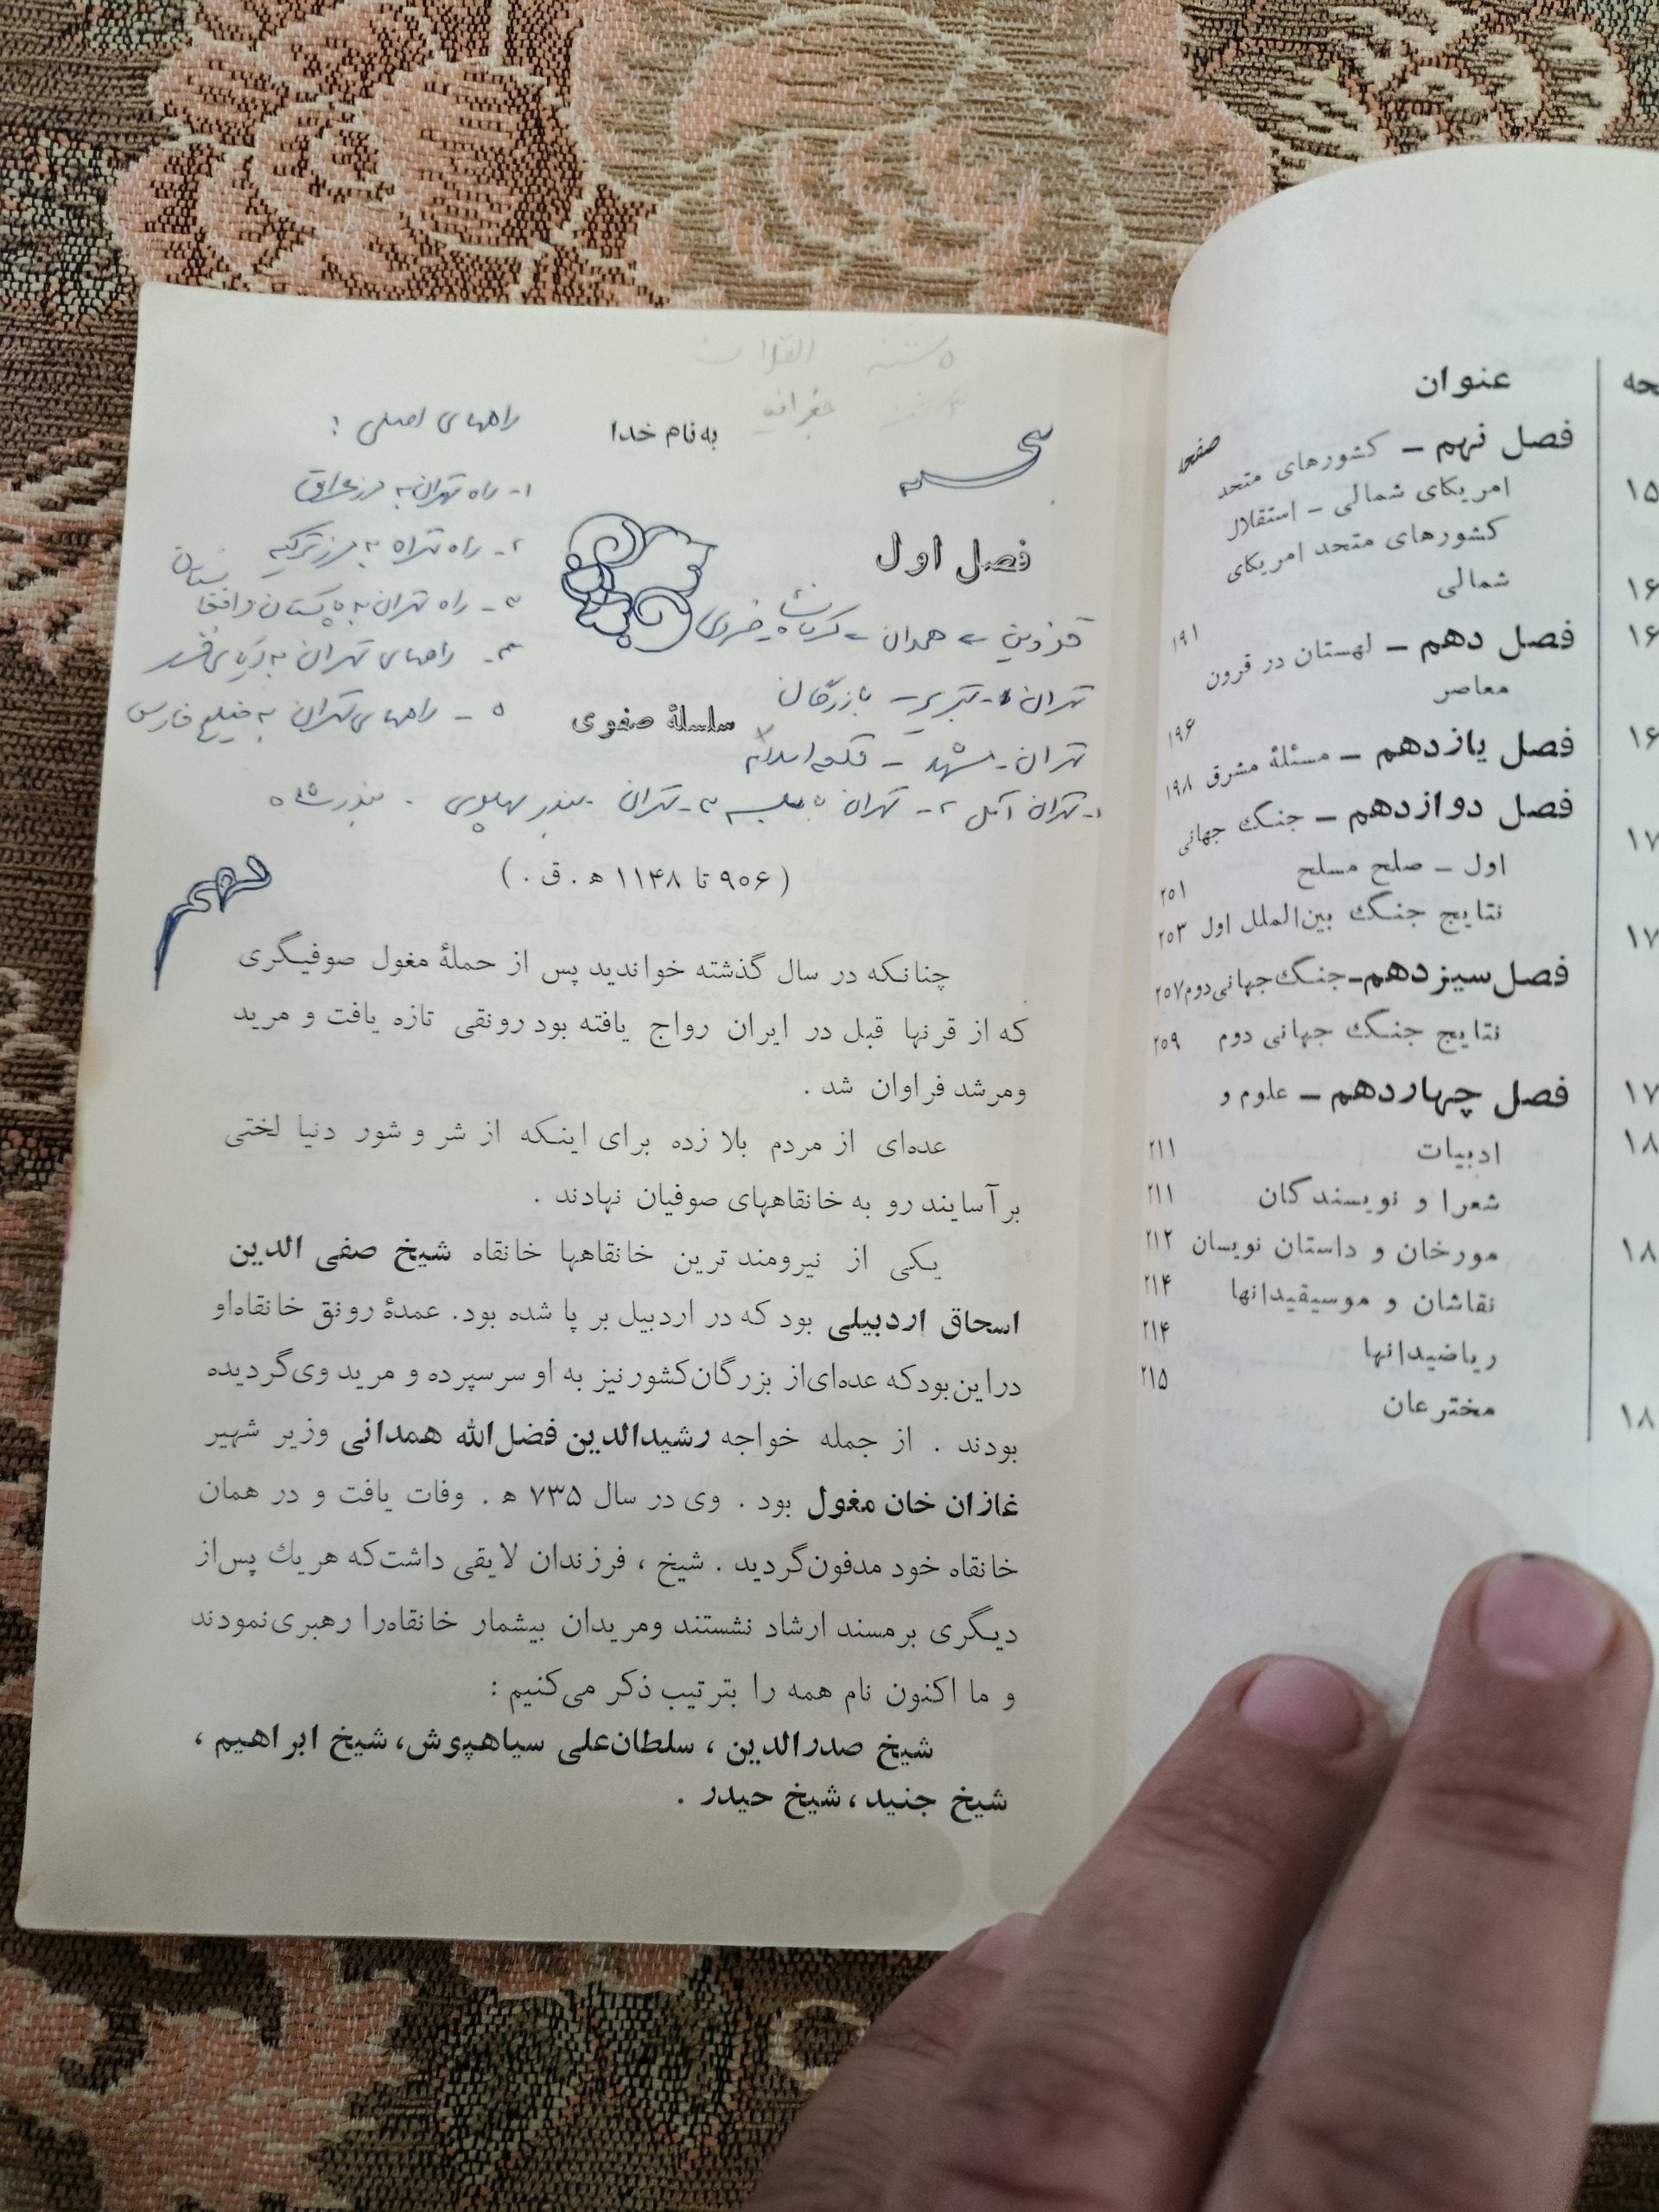 حه
۱۵
۱۶
۱۶
۱۶
۱۷
۱۷
۱۷
۱۸
۱۸
۱۸
عنوان
صفحه
فصل نهم – کشورهای متحد
امریکای شمالی – استقلال
کشورهای متحد امریکای
شمالی ۱۹۱
فصل دهم – لهستان در قرون
معاصر ۱۹۶
فصل یازدهم – مسئلهٔ مشرق ۱۹۸
فصل دوازدهم – جنگ جهانی
اول – صلح مسلح ۲۵۱
نتایج جنگ بین‌الملل اول ۲۵۳
فصل سیزدهم-جنگ جهانی دوم ۲۵۷
نتایج جنگ جهانی دوم ۲۵۹
فصل چهاردهم – علوم و
ادبیات ۲۱۱
شعرا و نویسندگان ۲۱۱
مورخان و داستان نویسان ۲۱۲
نقاشان و موسیقیدانها ۲۱۴
ریاضیدانها ۲۱۴
مخترعان ۲۱۵
جغرافیه
به نام خدا
راههای اصلی :
۱- راه تهران به مرز عراق
۲- راه تهران به مرز ترکیه
۳- راه تهران به پاکستان و افغانستان
۴- راههای تهران به دریای خزر
۵ – راههای تهران به خلیج فارس
فصل اول
قزوین – همدان – کرمانشاه – خسروی
تهران – تبریز – بازرگان
سلسلهٔ صفوی
تهران – مشهد – قلعه اسلام
۱- تهران آمل ۲- تهران بابلسر ۳- تهران بندر پهلوی . بندرشاه
( ۹۰۶ تا ۱۱۴۸ ه . ق . )
چنانکه در سال گذشته خواندید پس از حملهٔ مغول صوفیگری
که از قرنها قبل در ایران رواج یافته بود رونقی تازه یافت و مرید
ومرشد فراوان شد .
عده‌ای از مردم بلا زده برای اینکه از شر و شور دنیا لختی
بر آسایند رو به خانقاههای صوفیان نهادند .
یکی از نیرومند ترین خانقاهها خانقاه شیخ صفی الدین
اسحاق اردبیلی بود که در اردبیل بر پا شده بود. عمدهٔ رونق خانقاه‌او
دراین‌بودکه عده‌ای‌از بزرگان‌کشورنیز به او سرسپرده و مرید وی‌گردیده
بودند . از جمله خواجه رشیدالدین فضل‌الله همدانی وزیر شهیر
غازان خان مغول بود . وی در سال ۷۳۵ ه . وفات یافت و در همان
خانقاه خود مدفون‌گردید . شیخ ، فرزندان لایقی داشت‌که هریك پس‌از
دیگری برمسند ارشاد نشستند ومریدان بیشمار خانقاه‌را رهبری‌نمودند
و ما اکنون نام همه را بترتیب ذکر می‌کنیم :
شیخ صدرالدین ، سلطان‌علی سیاهپوش، شیخ ابراهیم ،
شیخ جنید ، شیخ حیدر .